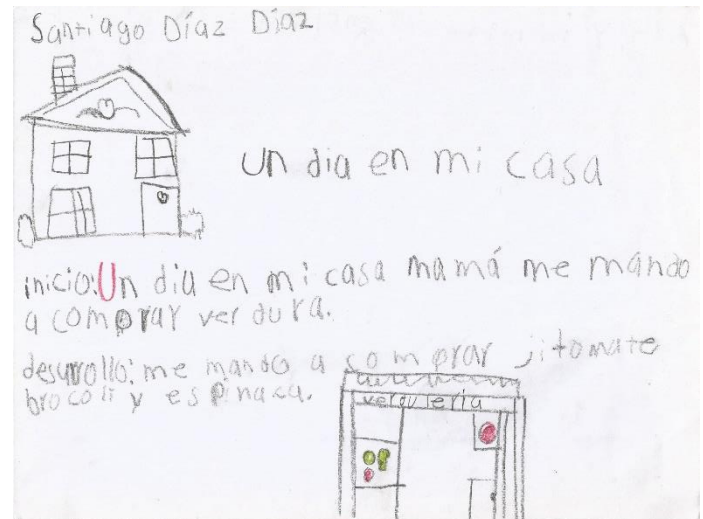 Santiago Díaz Díaz
un dia en mi casa
inicio: Un dia en mi casa mamá me mando
a comprar verdura.
desarrollo: me mando a comprar jitomate
brocoli y espinaca.
verduleria